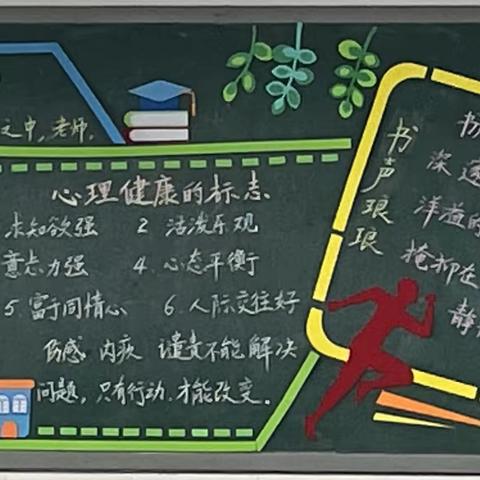 之中,老师.
心理健康的标志
求知欲强 2 活泼乐观
意志力强 4. 心态平衡
5.富于同情心 6.人际交往好
伤感 内疚 谴责不能解决
问题,只有行动.才能改变.
书声琅琅
书
深邃
洋溢的
掩抑在
静